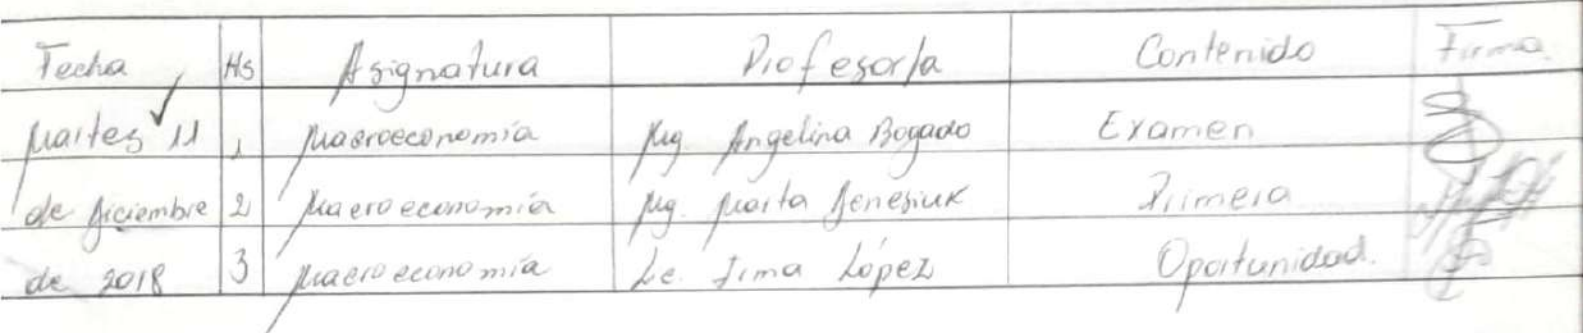 Fecha Hs Asignatura Profesor/a Contenido Firma
Martes 11 1 Macroeconomía Mg. Angelina Bogado Examen
de Diciembre 2 Macroeconomía Mg. Marta Primera
de 2018 3 Macroeconomía Lc. López Oportunidad.